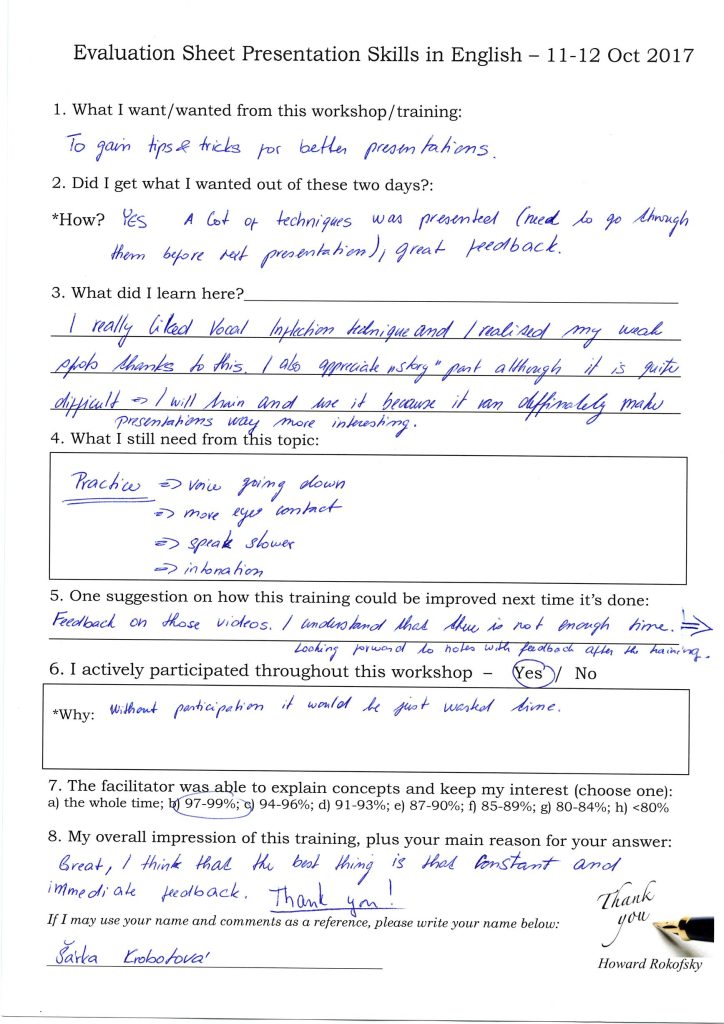 Evaluation Sheet Presentation Skills in English – 11-12 Oct 2017
1. What I want/wanted from this workshop/training:
To gain tips & tricks for better presentations.
2. Did I get what I wanted out of these two days?:
*How? YES A lot of techniques was presented (need to go through
them before next presentation), great feedback.
3. What did I learn here?
I really liked Vocal Inflection technique and I realised my weak
spots thanks to this. I also appreciate „story" part although it is quite
difficult => I will train and use it because it can deffinately make
presentations way more interesting.
4. What I still need from this topic:
Practice => voice going down
=> more eye contact
=> speak slower
=> intonation
5. One suggestion on how this training could be improved next time it's done:
Feedback on those videos. I understand that there is not enough time. =>
Looking forward to notes with feedback after the training.
6. I actively participated throughout this workshop – Yes / No
*Why: Without participation it would be just wasted time.
7. The facilitator was able to explain concepts and keep my interest (choose one):
a) the whole time; b) 97-99%; c) 94-96%; d) 91-93%; e) 87-90%; f) 85-89%; g) 80-84%; h) <80%
8. My overall impression of this training, plus your main reason for your answer:
Great, I think that the best thing is that constant and
immediate feedback. Thank you!
If I may use your name and comments as a reference, please write your name below:
Šárka Krobotová
Thank
you
Howard Rokofsky